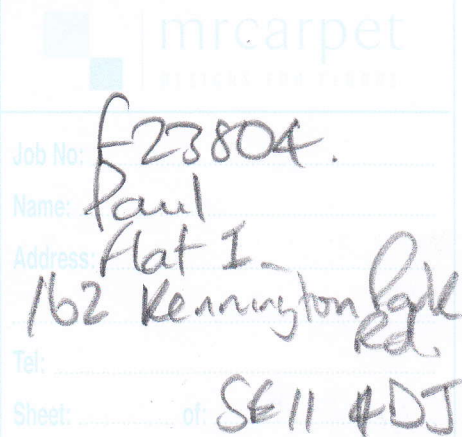 mrcarpet
DESIGNS FOR FLOORS
Job No: F23804.
Name: Paul
Address: Flat I
162 Kennington Park
Rd.
Tel:
Sheet: of: SE11 4DJ